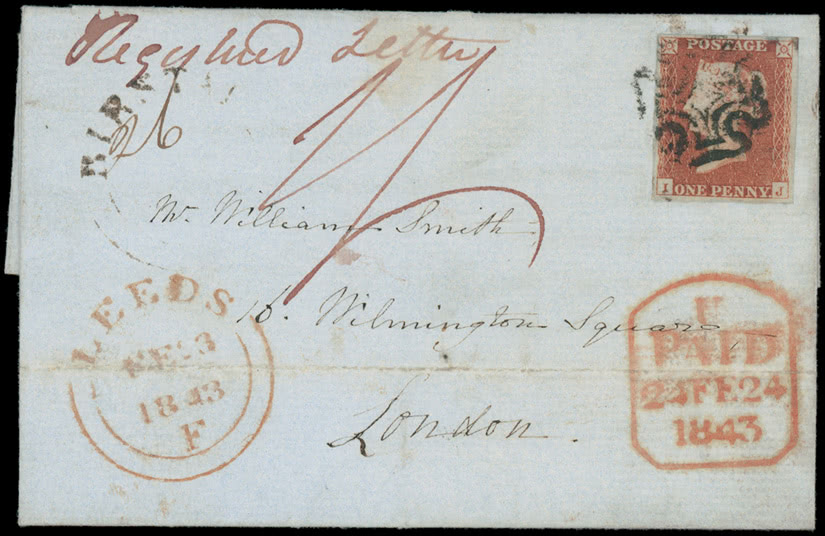 Registered Letter
POSTAGE
ONE PENNY.
I J
26
Mr. William Smith
16. Wilmington Square
London.
LEEDS
FE 23
1843
F
PAID
24 FE 24
1843